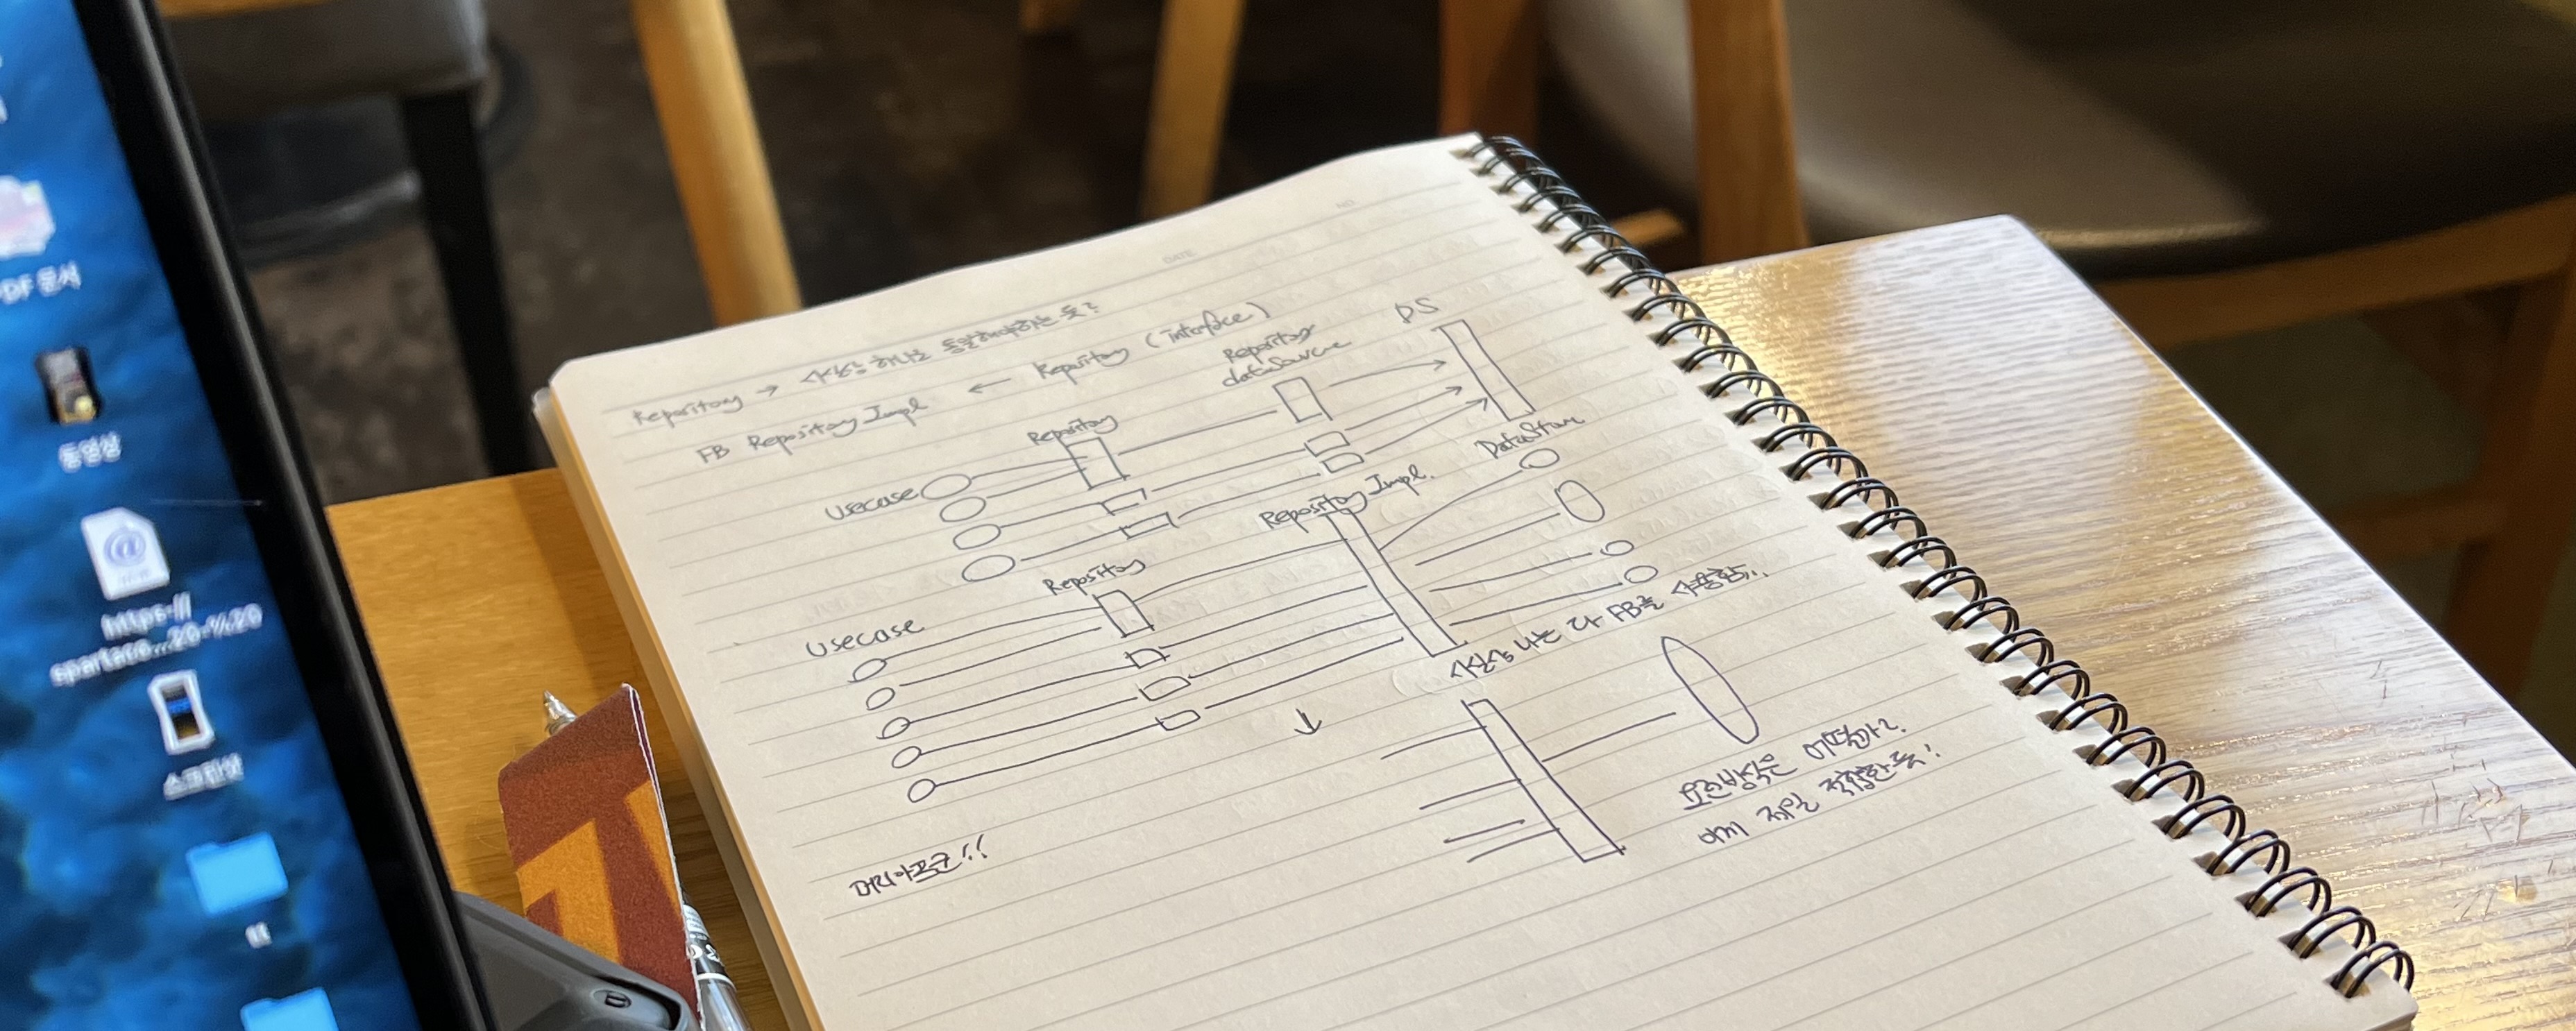 Repository → 사실상 하나로 동일해야하는 듯?
FB Repository Impl ← Repository (interface)
Repository
Repository
dataSource
DS
Usecase
Repository
Repository Impl.
DataStore
Usecase
사실상 나는 다 FB를 사용함..
↓
요런방식은 어떨까?
이게 제일 적합한 듯!
머리아프군!!
DATE
NO.
PDF 문서
동영상
https-//
spartaco...20-%20
스크린샷